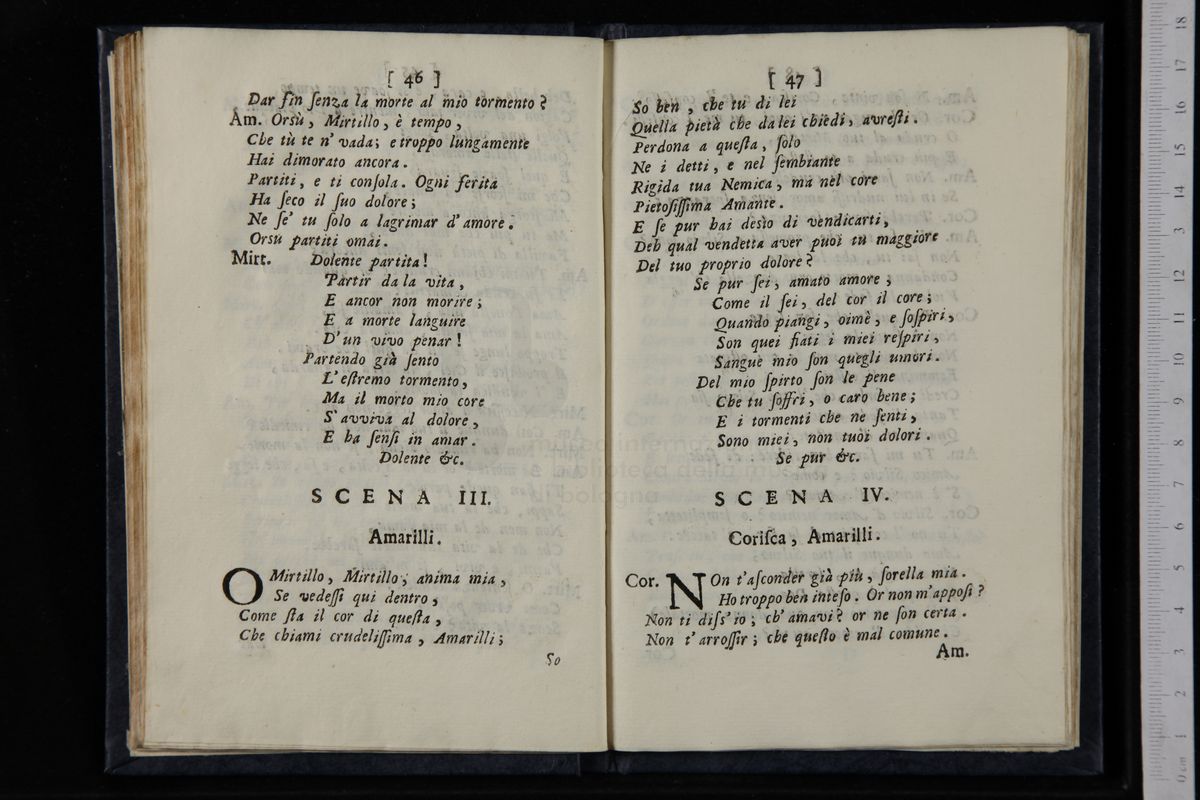 [ 46 ]
Dar fin ſenza la morte al mio tormento?
Am. Orsù, Mirtillo, è tempo,
Che tù te n' vada; e troppo lungamente
Hai dimorato ancora.
Partiti, e ti conſola. Ogni ferita
Ha ſeco il ſuo dolore;
Ne ſe' tu ſolo a lagrimar d'amore.
Orsù partiti omài.
Mirt. Dolente partita!
Partir da la vita,
E ancor non morire;
E a morte languire
D'un vivo penar!
Partendo già ſento
L'eſtremo tormento,
Ma il morto mio core
S'avviva al dolore,
E ha ſenſi in amar.
Dolente &c.
SCENA III.
Amarilli.
O Mirtillo, Mirtillo, anima mia,
Se vedeſſi qui dentro,
Come ſta il cor di queſta,
Che chiami crudeliſſima, Amarilli;
So
[ 47 ]
So ben, che tu di lei
Quella pietà che da lei chiedi, avreſti.
Perdona a queſta, ſolo
Ne i detti, e nel ſembiante
Rigida tua Nemica, ma nel core
Pietoſiſſima Amante.
E ſe pur hai desìo di vendicarti,
Deh qual vendetta aver puoi tu maggiore
Del tuo proprio dolore?
Se pur ſei, amato amore,
Come il ſei, del cor il core;
Quando piangi, oimè, e ſoſpiri,
Son quei fiati i miei reſpiri,
Sangue mio ſon quegli umori.
Del mio ſpirto ſon le pene
Che tu ſoffri, o caro bene;
E i tormenti che ne ſenti,
Sono miei, non tuoi dolori.
Se pur &c.
SCENA IV.
Coriſca, Amarilli.
Cor. NOn t'aſconder già più, ſorella mia.
Ho troppo ben inteſo. Or non m'appoſi?
Non ti diſs'io; ch'amavi? or ne ſon certa.
Non t'arroſſir; che queſto è mal comune.
Am.
museo internazionale
e biblioteca della musica
di bologna
18
17
16
15
14
13
12
11
10
9
8
7
6
5
4
3
2
1
0 cm